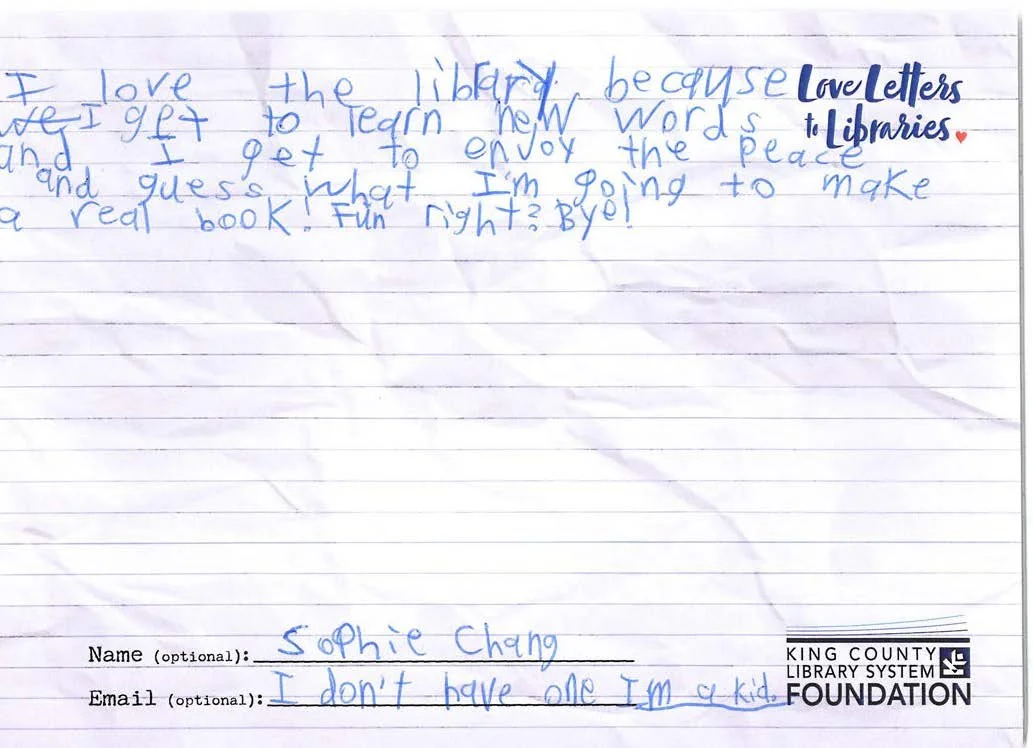 I love the library because
we I get to learn new words
and I get to enjoy the peace
and guess what I'm going to make
a real book! Fun right? Bye!
Love Letters
to Libraries.
Name (optional): Sophie Chang
Email (optional): I don't have one I'm a kid.
KING COUNTY
LIBRARY SYSTEM
FOUNDATION